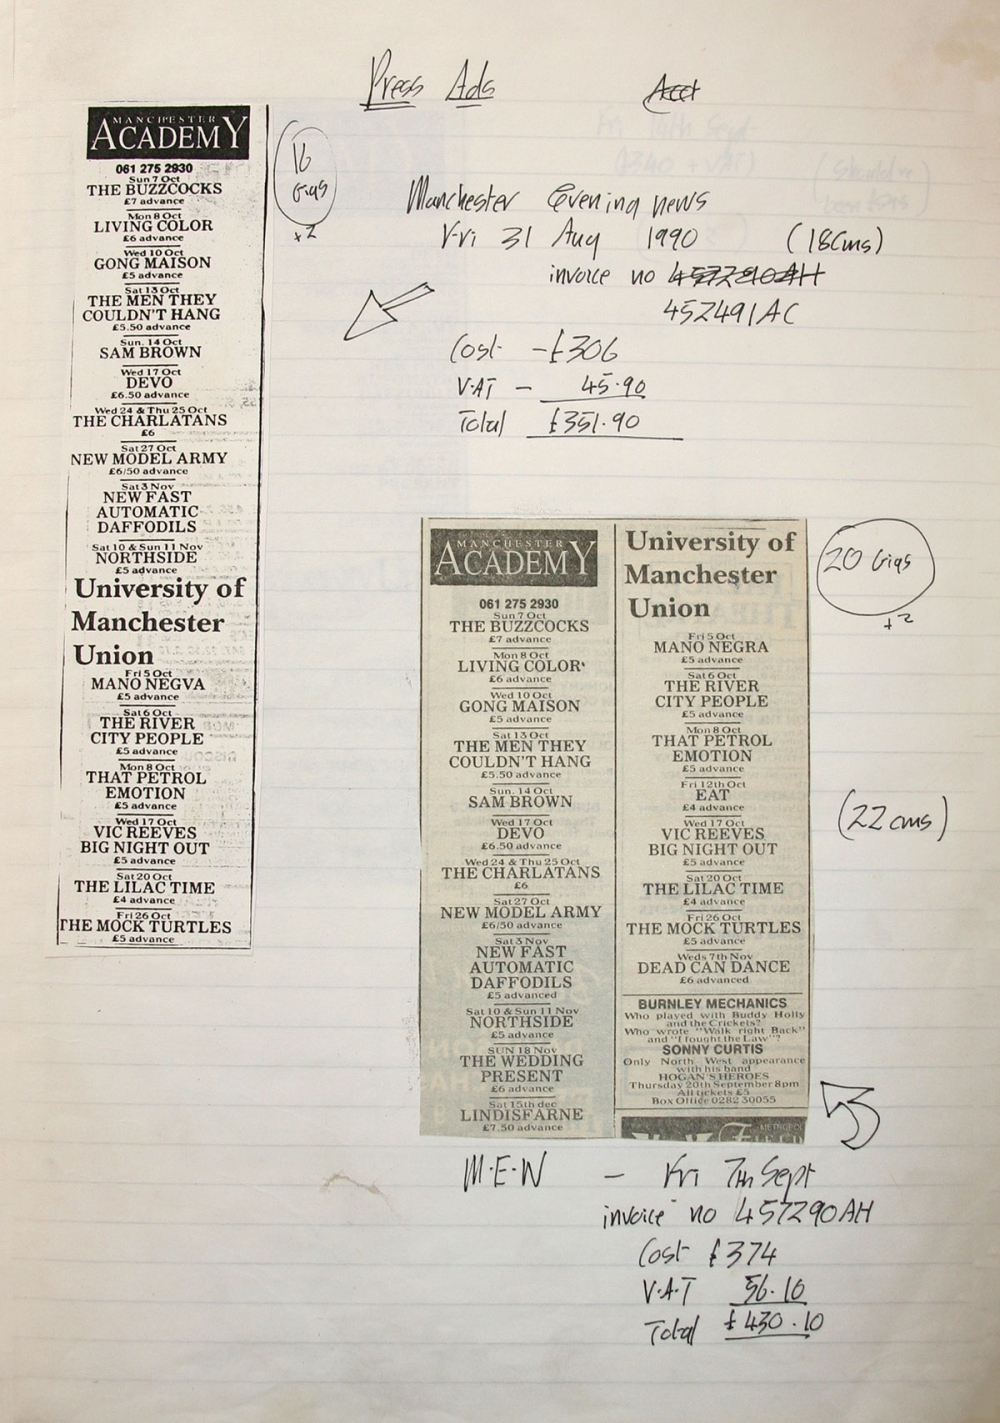 Press Ads
Acct
MANCHESTER
ACADEMY
061 275 2930
Sun 7 Oct
THE BUZZCOCKS
£7 advance
Mon 8 Oct
LIVING COLOR
£6 advance
Wed 10 Oct
GONG MAISON
£5 advance
Sat 13 Oct
THE MEN THEY
COULDN'T HANG
£5.50 advance
Sun. 14 Oct
SAM BROWN
Wed 17 Oct
DEVO
£6.50 advance
Wed 24 & Thu 25 Oct
THE CHARLATANS
£6
Sat 27 Oct
NEW MODEL ARMY
£6/50 advance
Sat 3 Nov
NEW FAST
AUTOMATIC
DAFFODILS
Sat 10 & Sun 11 Nov
NORTHSIDE
£5 advance
University of
Manchester
Union
Fri 5 Oct
MANO NEGVA
£5 advance
Sat 6 Oct
THE RIVER
CITY PEOPLE
£5 advance
Mon 8 Oct
THAT PETROL
EMOTION
£5 advance
Wed 17 Oct
VIC REEVES
BIG NIGHT OUT
£5 advance
Sat 20 Oct
THE LILAC TIME
£4 advance
Fri 26 Oct
THE MOCK TURTLES
£5 advance
16
Gigs
+2
Manchester Evening news
Fri 31 Aug 1990 (18cms)
invoice no 457290AH
452491AC
Cost - £306
V.A.T - 45.90
Total £351.90
MANCHESTER
ACADEMY
061 275 2930
Sun 7 Oct
THE BUZZCOCKS
£7 advance
Mon 8 Oct
LIVING COLOR
£6 advance
Wed 10 Oct
GONG MAISON
£5 advance
Sat 13 Oct
THE MEN THEY
COULDN'T HANG
£5.50 advance
Sun. 14 Oct
SAM BROWN
Wed 17 Oct
DEVO
£6.50 advance
Wed 24 & Thu 25 Oct
THE CHARLATANS
£6
Sat 27 Oct
NEW MODEL ARMY
£6/50 advance
Sat 3 Nov
NEW FAST
AUTOMATIC
DAFFODILS
£5 advanced
Sat 10 & Sun 11 Nov
NORTHSIDE
£5 advance
SUN 18 Nov
THE WEDDING
PRESENT
£6 advance
Sat 15th dec
LINDISFARNE
£7.50 advance
University of
Manchester
Union
Fri 5 Oct
MANO NEGRA
£5 advance
Sat 6 Oct
THE RIVER
CITY PEOPLE
£5 advance
Mon 8 Oct
THAT PETROL
EMOTION
£5 advance
Fri 12th Oct
EAT
£4 advance
Wed 17 Oct
VIC REEVES
BIG NIGHT OUT
£5 advance
Sat 20 Oct
THE LILAC TIME
£4 advance
Fri 26 Oct
THE MOCK TURTLES
£5 advance
Weds 7th Nov
DEAD CAN DANCE
£6 advanced
BURNLEY MECHANICS
Who played with Buddy Holly
and the Crickets?
Who wrote "Walk right Back"
and "I fought the Law"?
SONNY CURTIS
Only North West appearance
with his band
HOGAN'S HEROES
Thursday 20th September 8pm
All tickets £5
Box Office 0282 30055
20 Gigs
+2
(22 cms)
M.E.N - Fri 7th Sept
invoice no 457290AH
Cost £374
V.A.T 56.10
Total £430.10